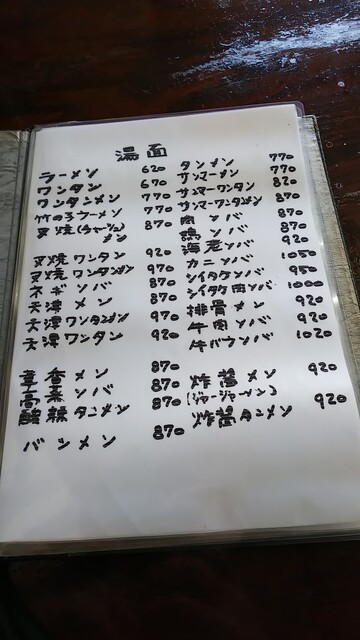 湯面
ラーメン 620
ワンタン 670
ワンタンメン 770
竹の子ラーメン 770
叉焼(チャーシュー)メン 870
叉焼ワンタン 920
叉焼ワンタンメン 970
ネギソバ 870
天津メン 870
天津ワンタンメン 970
天津ワンタン 920
葦香メン 870
高菜ソバ 870
酸辣タンメン 870
バンメン 870
タンメン 770
サンマーメン 770
サンマーワンタン 820
サンマーワンタンメン 870
肉ソバ 870
鶏ソバ 870
海老ソバ 920
カニソバ 1050
シイタケソバ 950
シイタケ肉ソバ 1000
排骨メン 920
牛肉ソバ 920
牛バラソバ 1020
炸醤メン 920
(ジャージャーメン)
炸醤タンメン 920